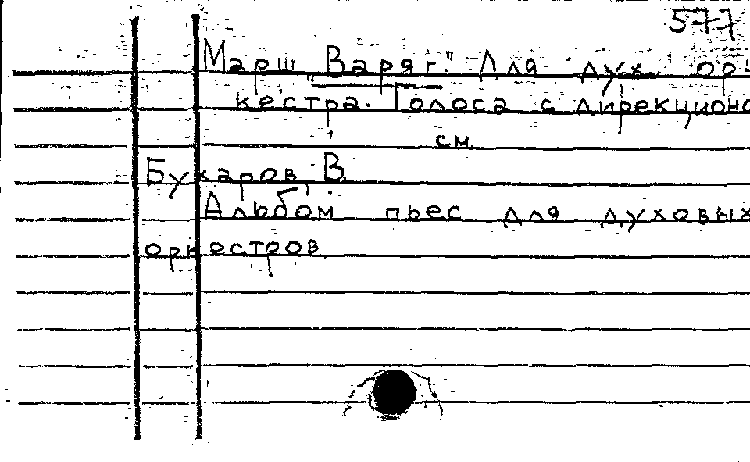 577
Марш "Варяг." Для дух. ор-
кестра. Голоса с дирекционо
см.
Бухаров, В.
Альбом пьес для духовых
оркестров